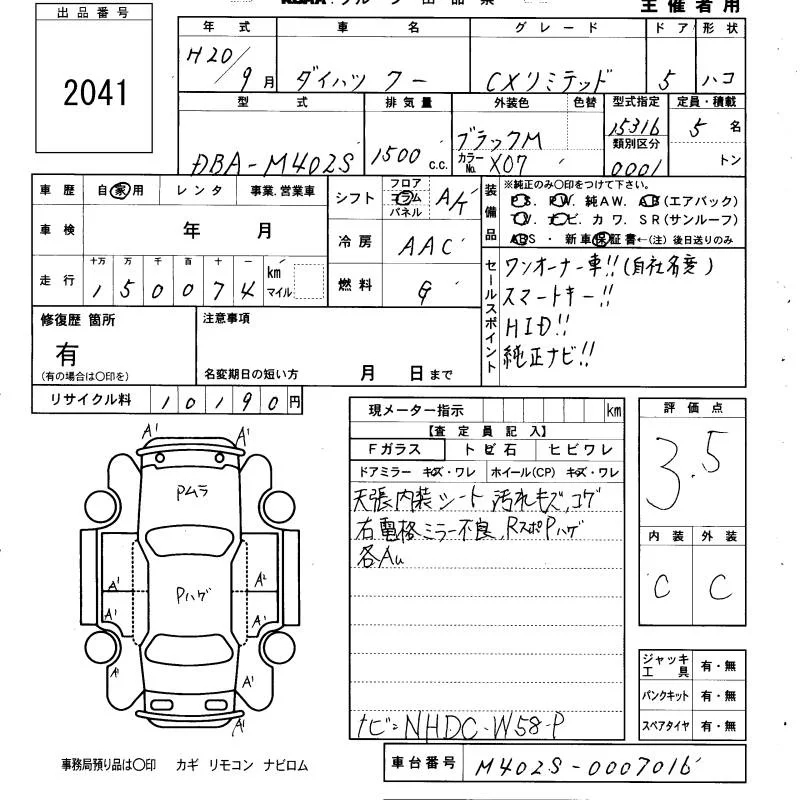 出品番号
2041
主催者用
年式 車名 グレード ドア 形状
H20/9月 ダイハツ クー CXリミテッド 5 ハコ
型式 排気量 外装色 色替 型式指定 定員・積載
DBA-M402S 1500 c.c. ブラックM 15316 5名
カラーNo. X07 類別区分 0001 トン
車歴 自家用 レンタ 事業.営業車
シフト フロア コラム パネル A/T
車検 年 月
冷房 AAC
走行 十万 万 千 百 十 一
150074 km マイル
燃料 G
装備品 ※純正のみ○印をつけて下さい。
PS. PW. 純AW. AB(エアバック)
TV. ナビ. カワ. SR(サンルーフ)
ABS ・ 新車保証書←(注)後日送りのみ
セールスポイント
ワンオーナー車!!(自社名変)
スマートキー!!
HID!!
純正ナビ!!
修復歴 箇所
有
(有の場合は○印を)
注意事項
名変期日の短い方 月 日まで
リサイクル料 10190円
現メーター指示 km
【査定員記入】
Fガラス トビ石 ヒビワレ
ドアミラー キズ・ワレ ホイール(CP) キズ・ワレ
天張内装シート汚れキズ、コゲ
右電格ミラー不良、RスポPハゲ
各Au
ナビ=NHDC-W58-P
評価点
3.5
内装 外装
C C
ジャッキ工具 有・無
パンクキット 有・無
スペアタイヤ 有・無
A' A'
Pムラ
Pハゲ
A' A2
A' A'
A' A'
A'
事務局預り品は○印 カギ リモコン ナビロム
車台番号 M402S-0007016